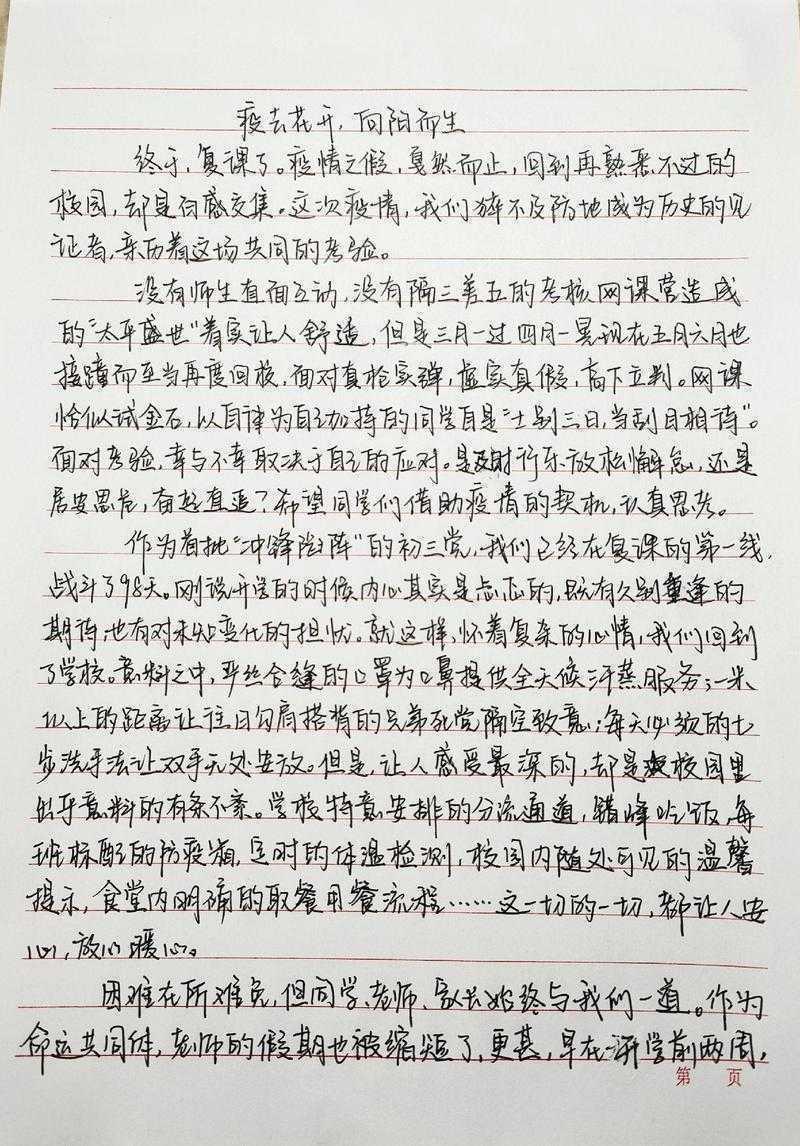 疫去花开，向阳而生
终于，复课了。疫情之假，戛然而止，回到再熟悉不过的
校园，却是百感交集。这次疫情，我们猝不及防地成为历史的见
证者，亲历着这场共同的考验。
没有师生直面互动，没有隔三差五的考核，网课营造成
的“太平盛世”着实让人舒适，但是三月一过四月一晃现在五月六月也
接踵而至当再度回校，面对真枪实弹，虚实真假，高下立判。网课
恰似试金石，以自律为自己加持的同学自是“士别三日，当刮目相待”。
面对考验，幸与不幸取决于自己的应对。是及时行乐放松懈怠，还是
居安思危，奋起直追？希望同学们借助疫情的契机，认真思考。
作为首批“冲锋陷阵”的初三党，我们已经在复课的第一线，
战斗了98天。刚说开学的时候内心其实是忐忑的，既有久别重逢的
期待，也有对未知变化的担忧。就这样，怀着复杂的心情，我们回到
了学校。意料之中，严丝合缝的口罩为口鼻提供全天候汗蒸服务；一米
以上的距离让往日勾肩搭背的兄弟死党隔空致意；每天必须的七
步洗手法让双手无处安放。但是，让人感受最深的，却是校园里
出乎意料的有条不紊。学校特意安排的分流通道，错峰吃饭，每
班标配的防疫箱，定时的体温检测，校园内随处可见的温馨
提示，食堂内明确的取餐用餐流程……这一切的一切，都让人安
心，放心，暖心。
困难在所难免，但同学、老师、家长始终与我们一道。作为
命运共同体，老师的假期也被缩短了，更甚，早在开学前两周，
第 页